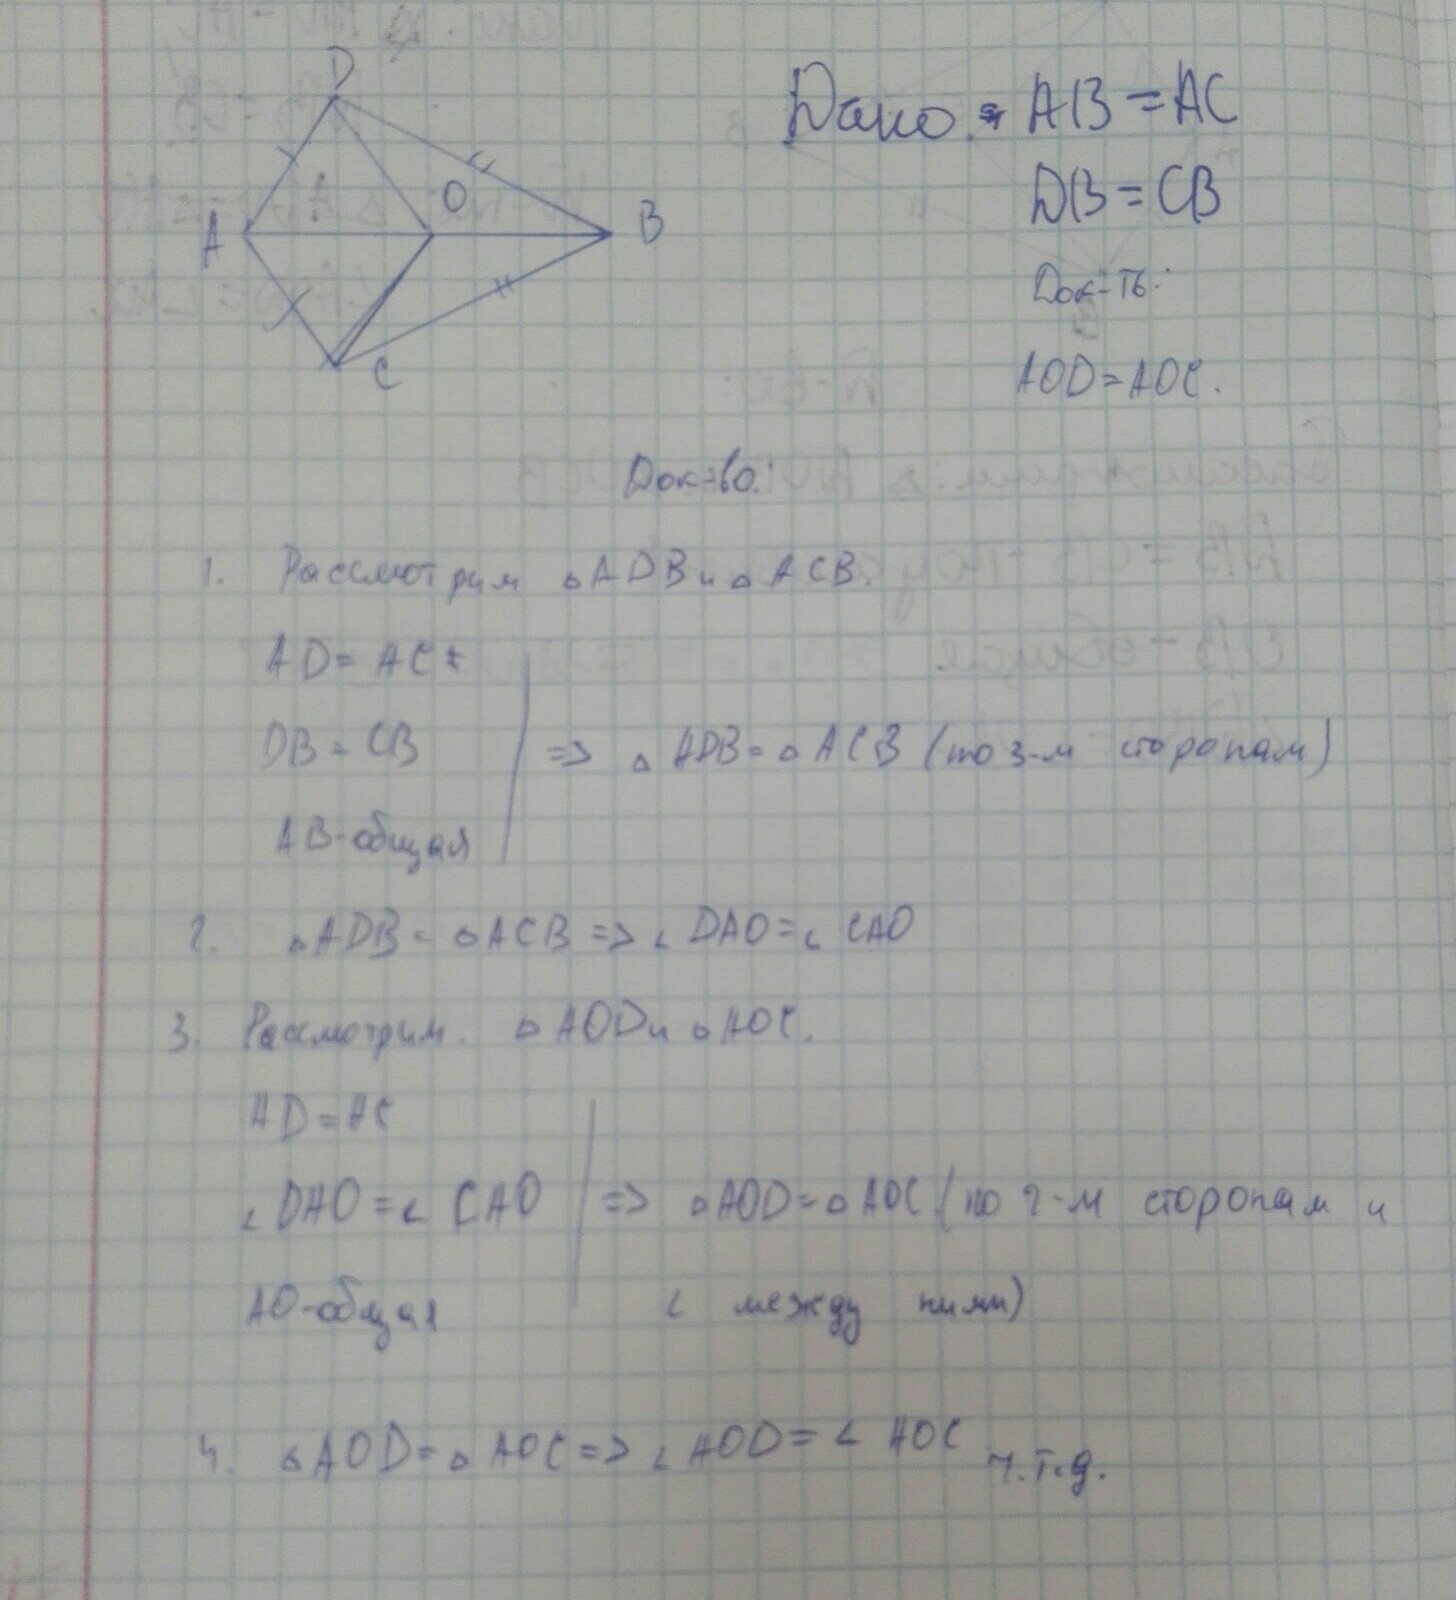 D
A
O
B
C
Дано: AB = AC
DB = CB
Док-ть:
AOD = AOC.
Док-во:
1. Рассмотрим △ADB и △ACB.
AD = AC
DB = CB
AB-общая
=> △ADB = △ACB (по 3-м сторонам)
2. △ADB = △ACB => ∠DAO = ∠CAO
3. Рассмотрим. △AOD и △AOC.
AD = AC
∠DAO = ∠CAO
AO-общая
=> △AOD = △AOC (по 2-м сторонам и
∠ между ними)
4. △AOD = △AOC => ∠AOD = ∠AOC ч.т.д.